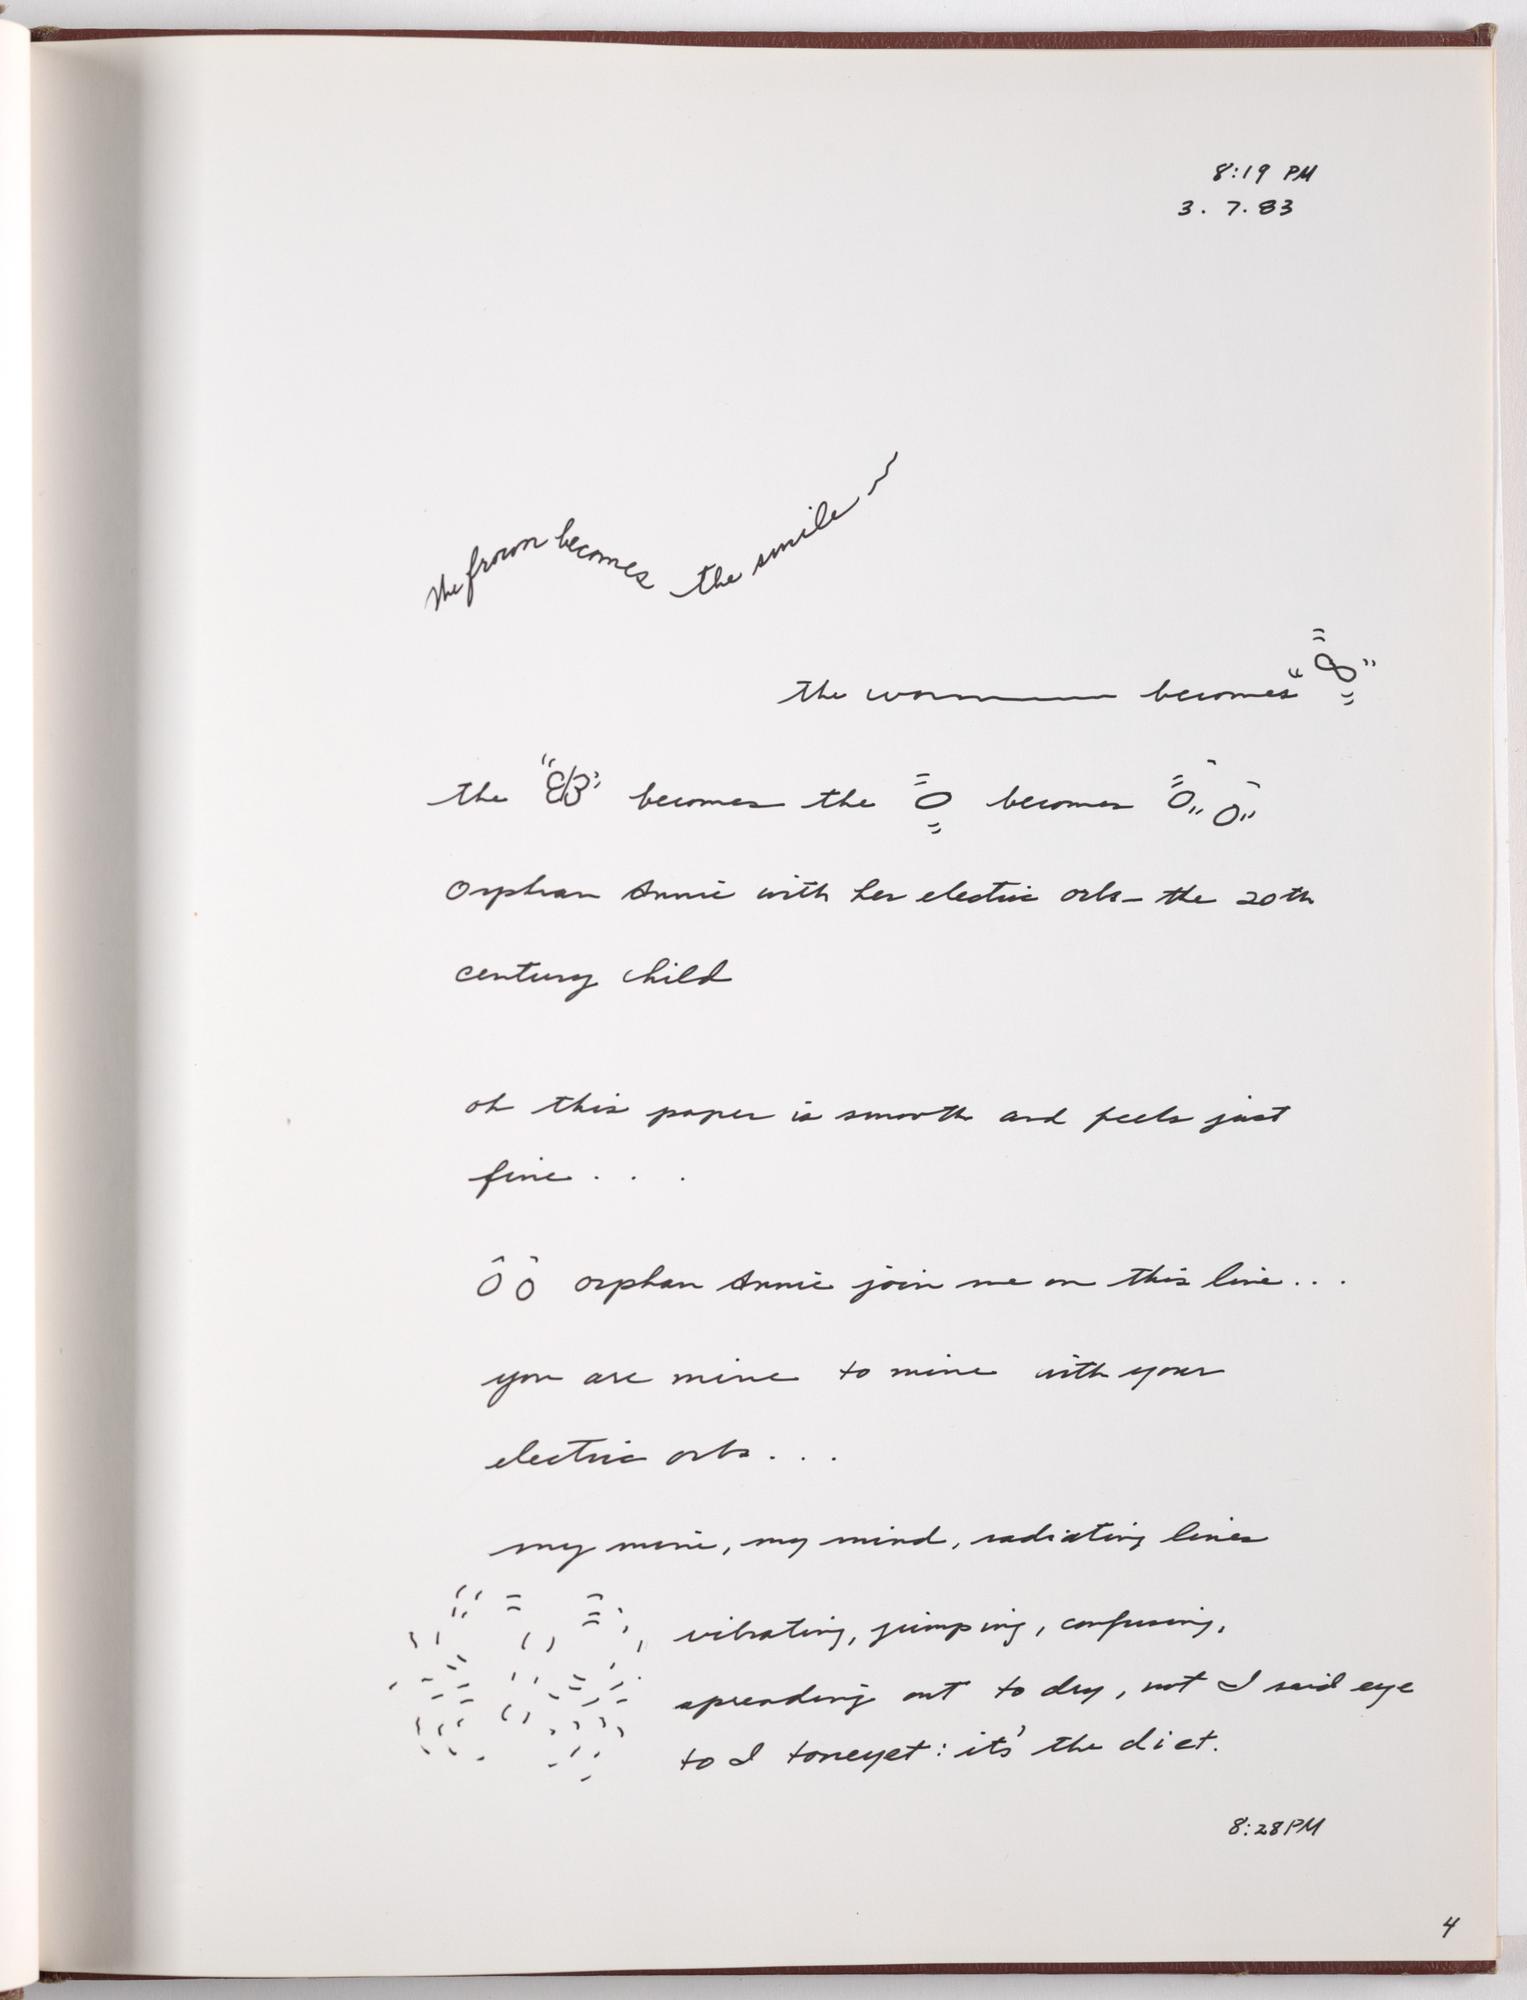 8:19 PM
3. 7. 83
the frown becomes the smile
the worm becomes " 8 "
the becomes the o becomes o o
Orphan Annie with her electric orbs – the 20th
century child
oh this paper is smooth and feels just
fine . . .
o o orphan Annie join me on this line . . .
you are mine to mine with your
electric orbs . . .
my mine, my mind, radiating lines
vibrating, jumping, confusing,
spreading out to dry, not I said eye
to I : it's the diet.
8:28 PM
4